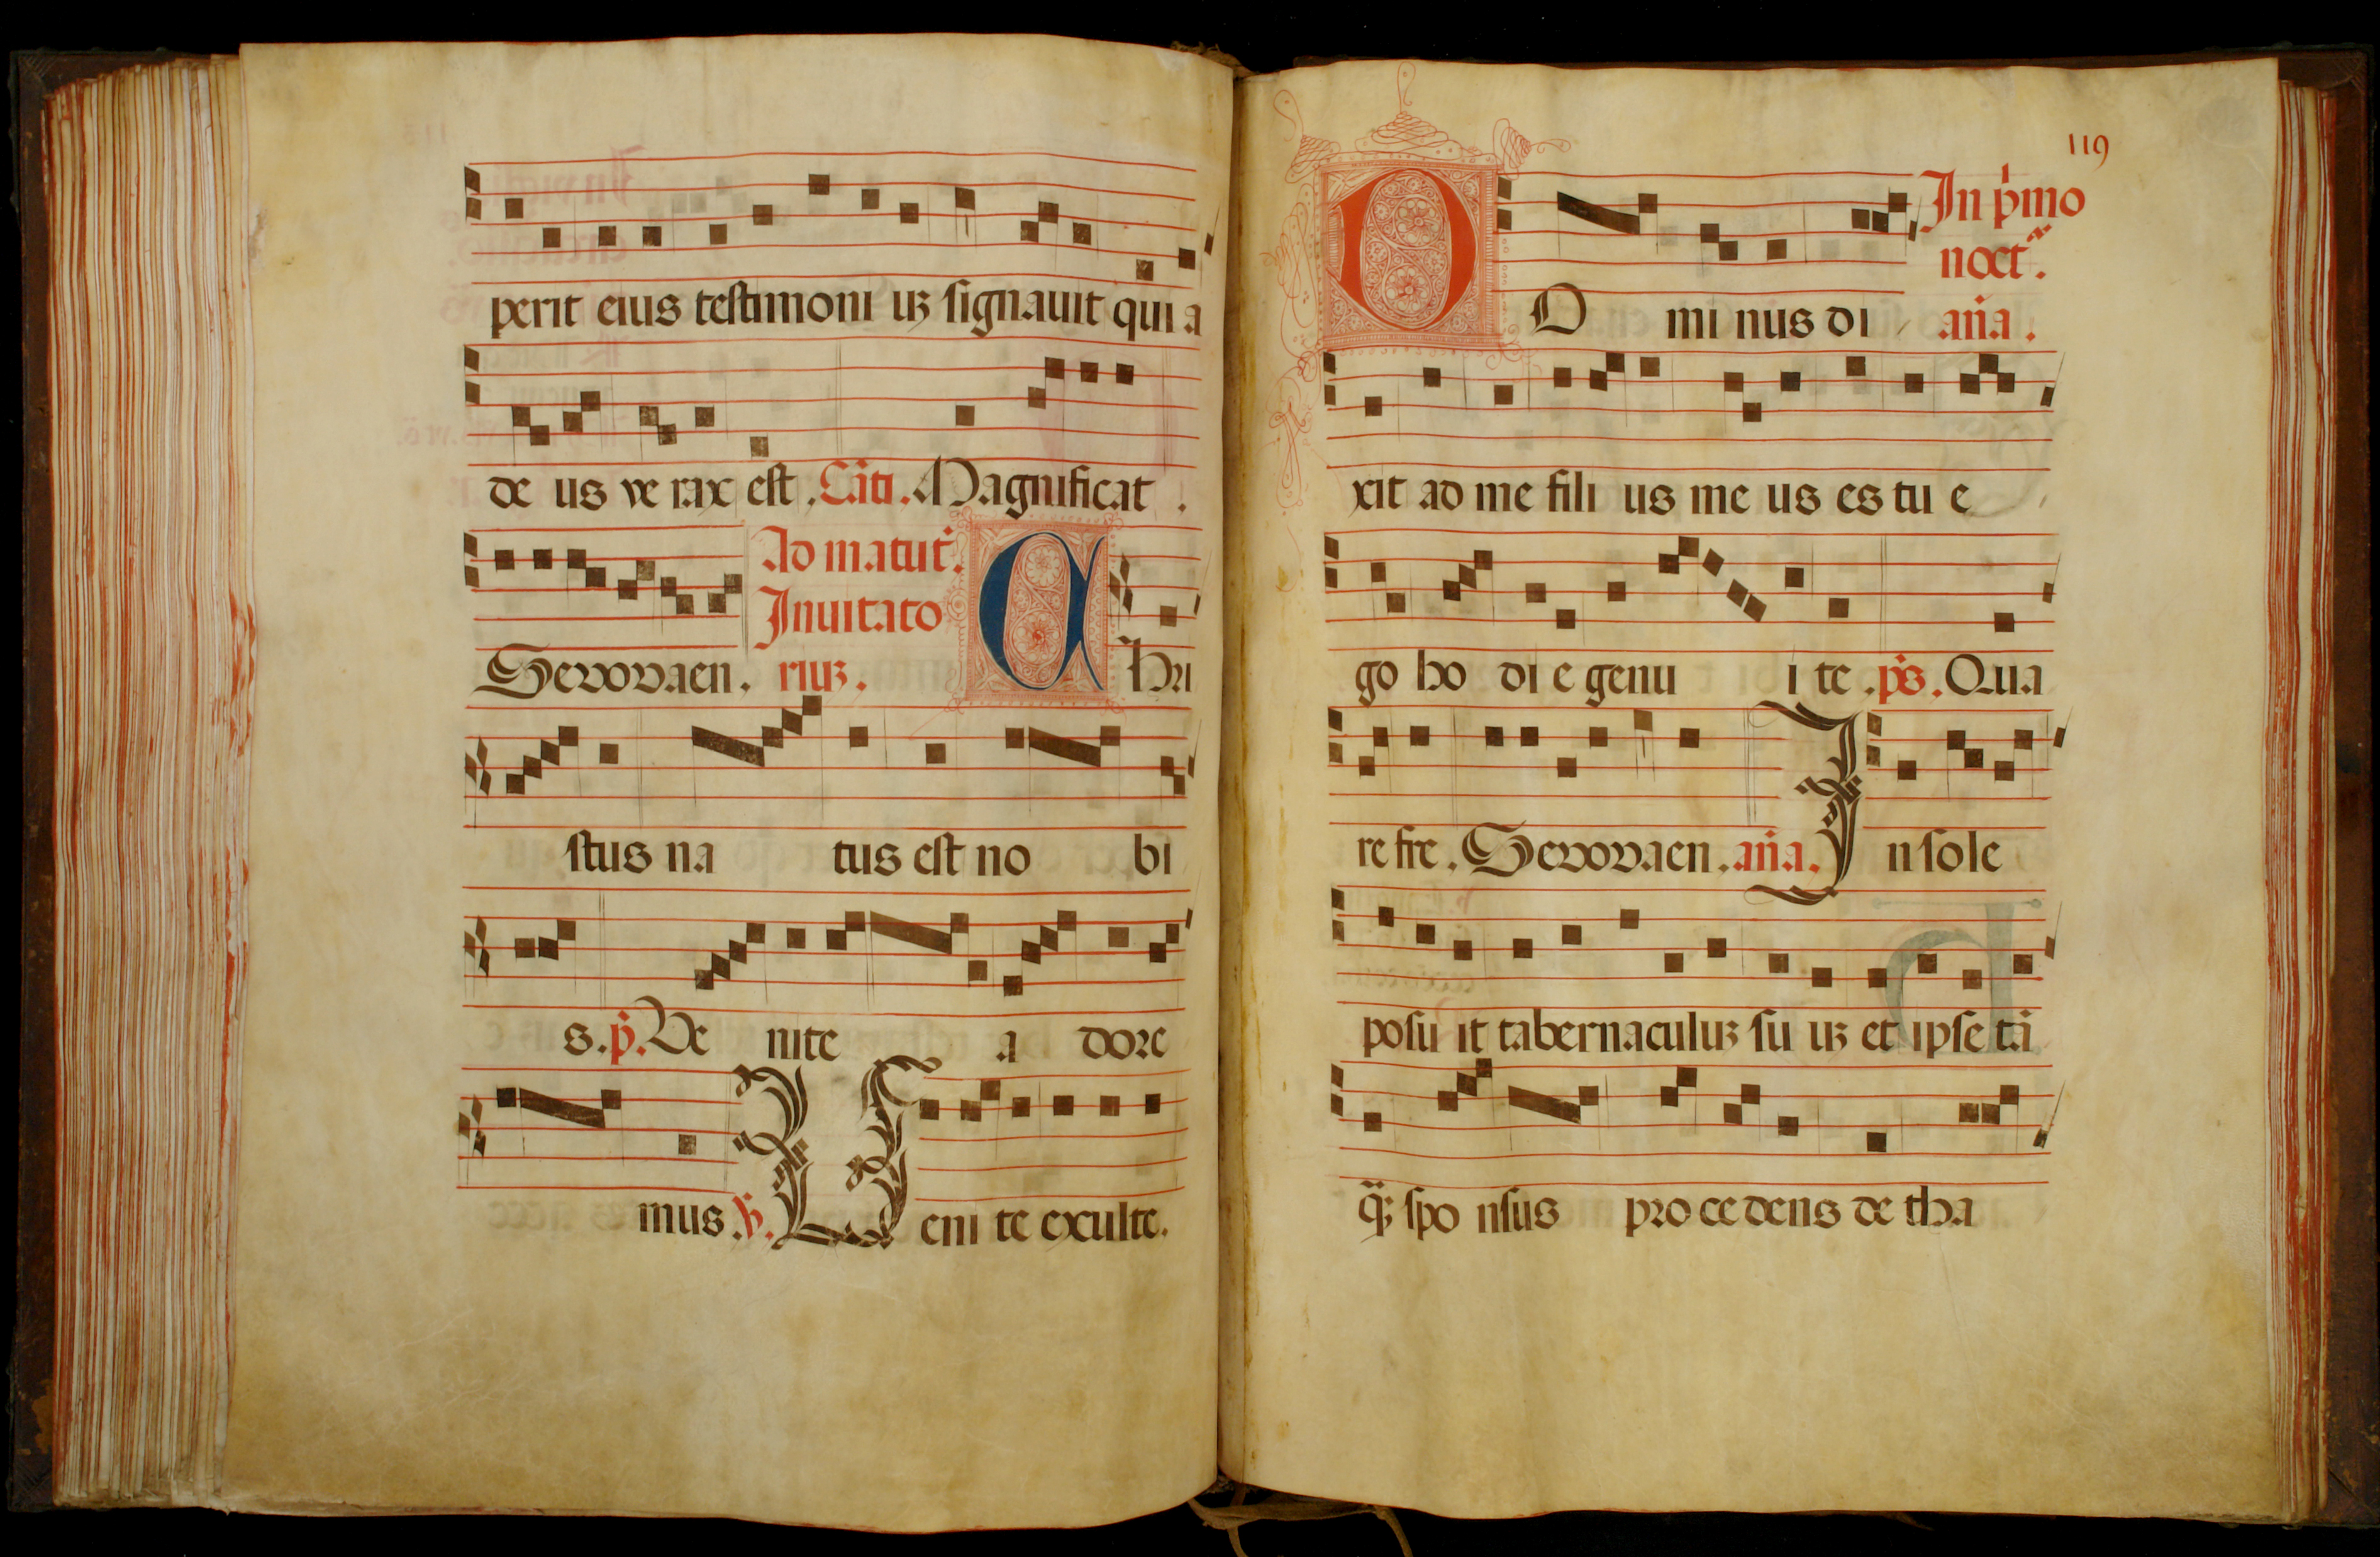 perit eius testimoni uꝫ signauit qui a
de us ve rax est . Cãti . Magnificat .
Ad matut̃ .
Inuitato
Seuouaen . riuꝫ . C hr̃i
stus na tus est no bi
s . p̃ . Ve nite a dore
mus . ꝟ . V eni te exulte .
119
In p̃mo
noct̃ .
D O mi nus di an̄a .
xit ad me fili us me us es tu e
go ho di e genu i te . p̃s . Qua
re fre . Seuouaen . an̄a . I n sole
posu it tabernaculuꝫ su uꝫ et ipse tã
q̃ꝫ spo nsus pro ce dens de tha